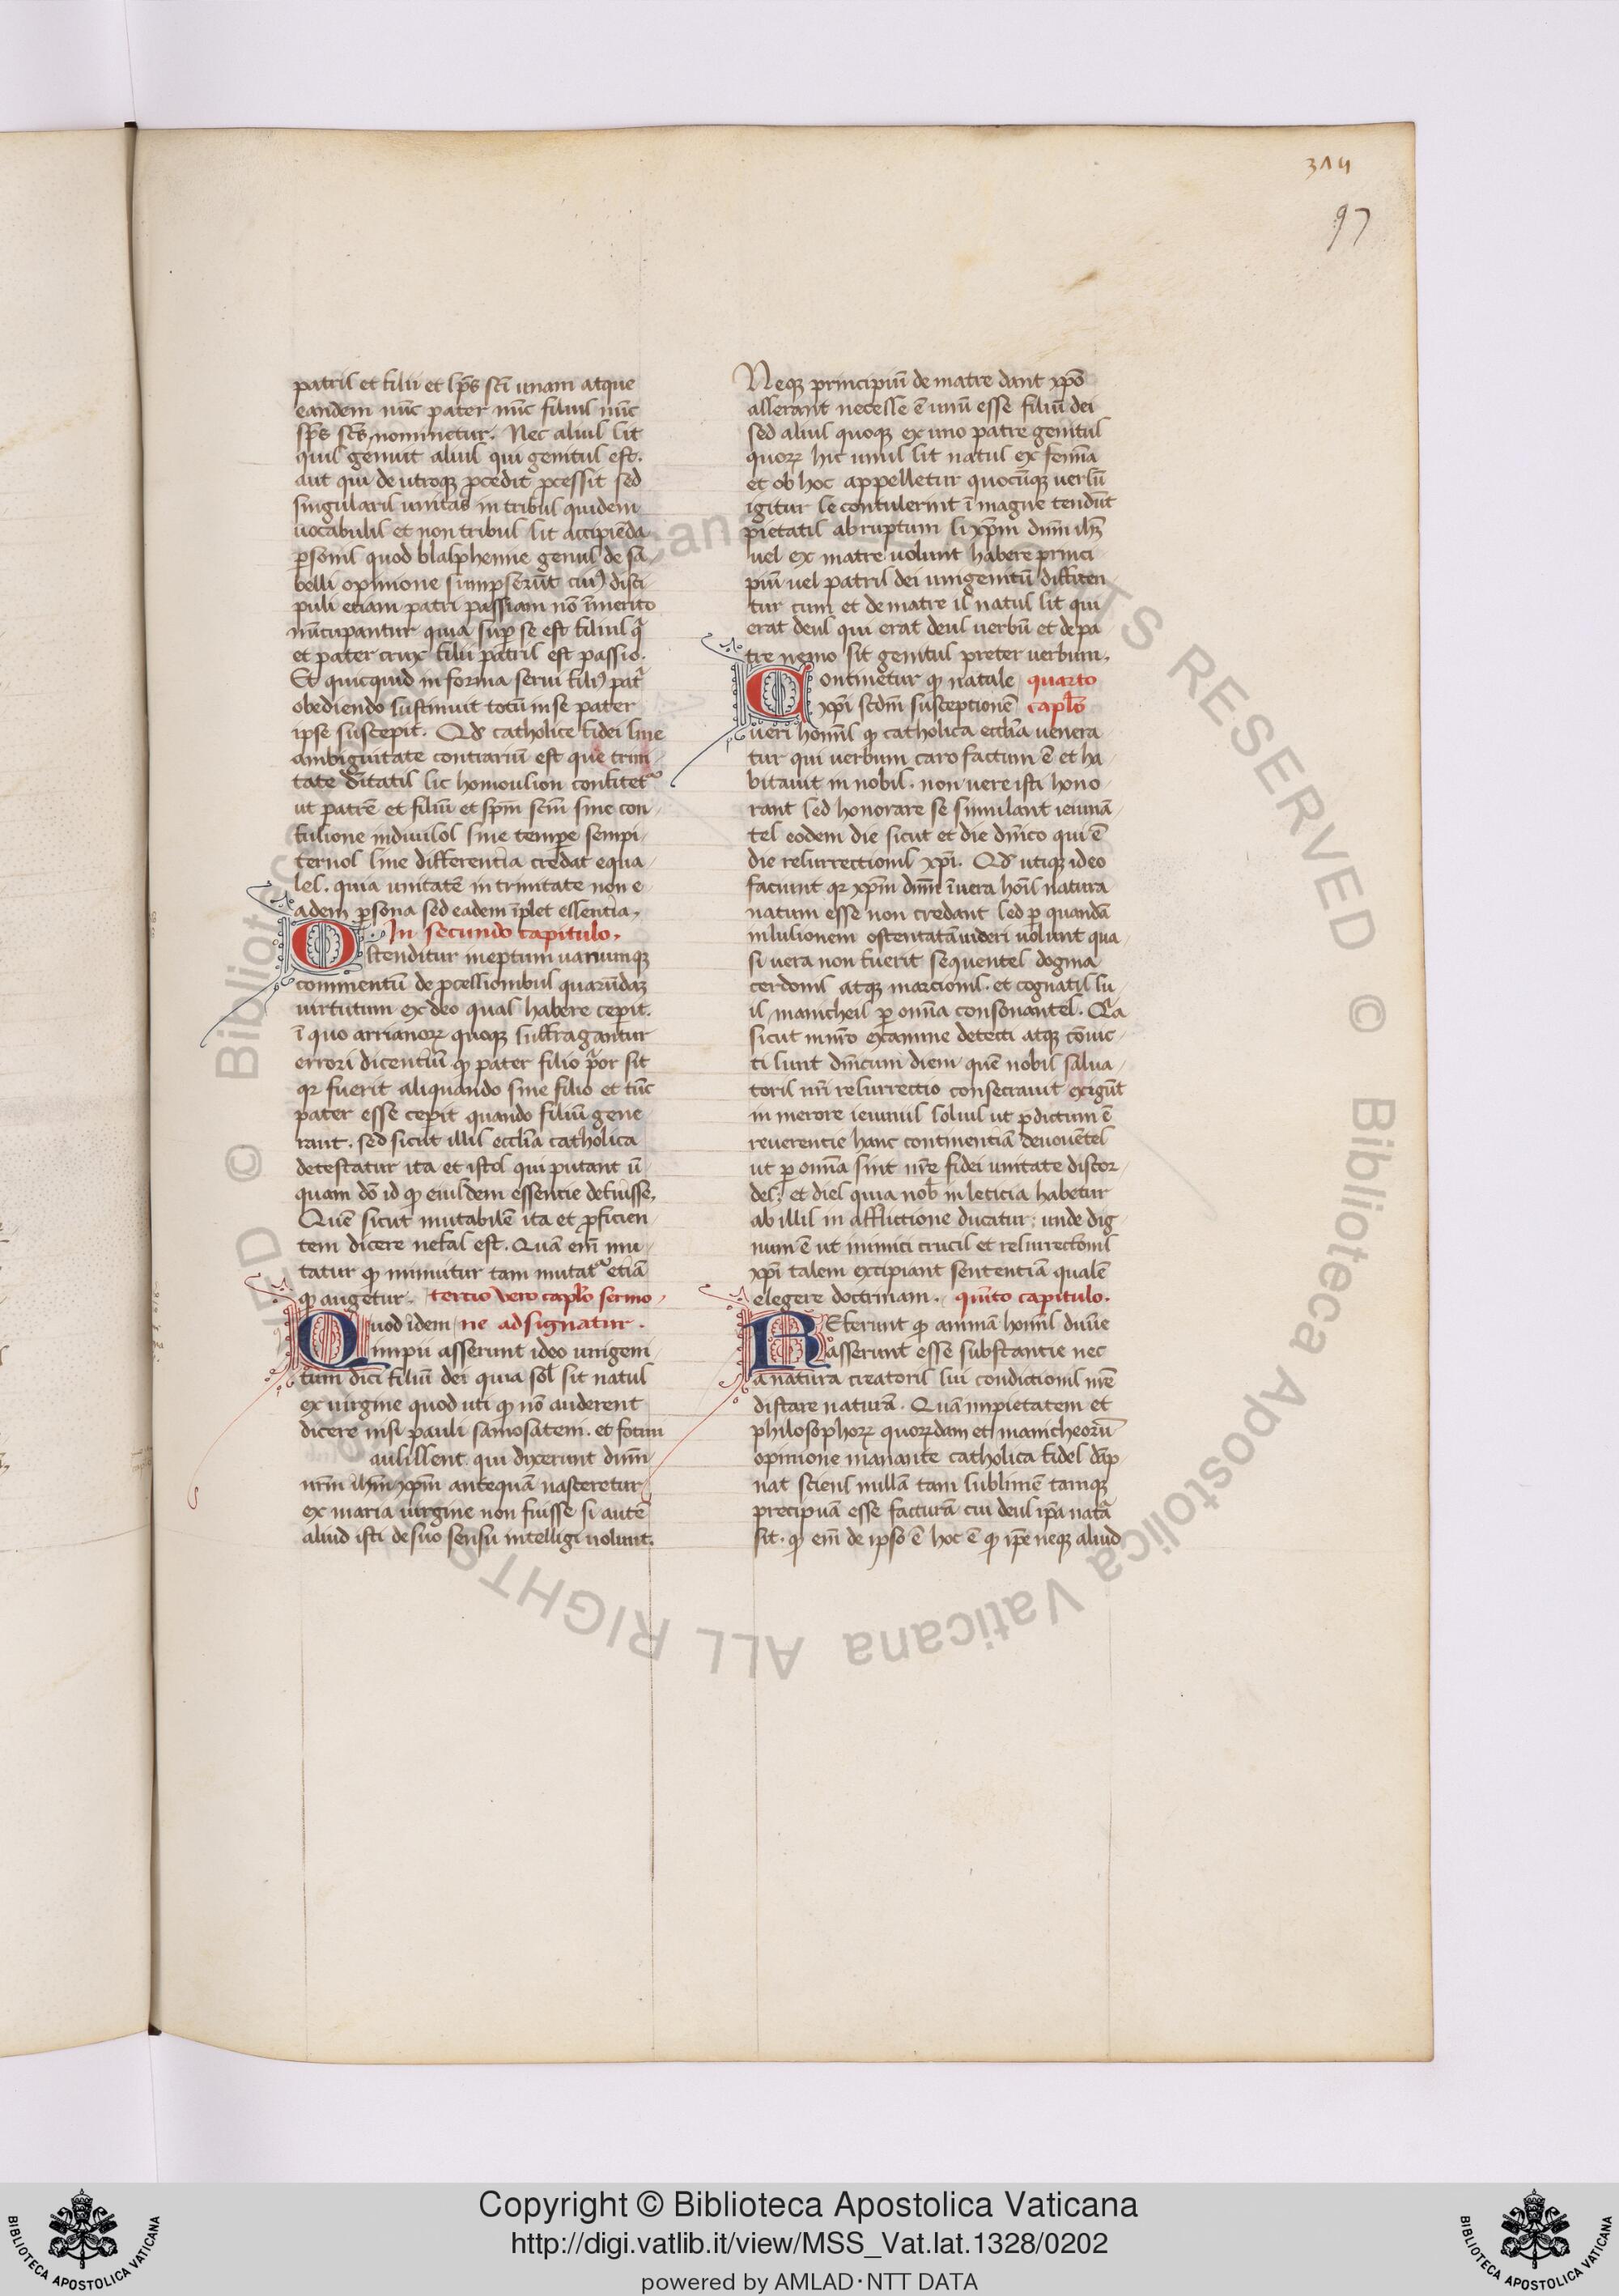 314
97
patris et filii et sp̄s sc̄i unam atque
eandem nūc pater nūc filius nūc
sp̄s sc̄s nominetur. Nec alius sit
quis genuit alius qui genitus est.
aut qui de utroqꝫ ꝓcedit ꝓcessit sed
singularis unitas in tribus quidem
uocabulis et non tribus sit accipiēda
ꝑsonis quod blasphemie genus de sa
belli opinione sumpserūt cuiꝰ disci
puli etiam patri passiani nō īmerito
nūcupantur quia
et pater crux filii patris est passio.
Et quicquid in forma serui filiꝰ patͥ
obediendo sustinuit totū in se pater
ipse suscepit. Qd̄ catholice fidei sine
ambiguitate contrariū est que trini
tate ditatis sic homousion confitetᷣ
ut patrē et filiū et sp̄m sc̄m sine con
fusione indiuisos sine tempe sempi
ternos sine differentia credat equa
les. quia unitatē in trinitate non e
adem ꝑsona sed eadem īplet essentia.
In secundo capitulo.
Ostenditur ineptum uanumqꝫ
commentū de ꝓcessionibus quarūdaꝫ
uirtutum ex deo quas habere cepit.
ī quo arrianoꝝ quoqꝫ suffragantur
errori dicentiū ꝙ pater filio pͥor sit
qꝛ fuerit aliquando sine filio et tūc
pater esse cepit quando filiū gene
rant. sed sicut illis eccl̄ia catholica
detestatur ita et istos qui putant ū
quam dō id ꝙ eiusdem essentie defuisse.
Quē sicut mutabilē ita et ꝓficien
tem dicere nefas est. Quā em̄ mu
tatur ꝙ minuitur tam mutatᷣ etiā
ꝙ augetur. tercio vero capl̄o sermo
Quod idem ne adsignatur.
impii asserunt ideo unigeni
tum dici filiū dei quia sol̄ sit natus
ex uirgine quod uti ꝙ nō auderent
dicere nisi pauli samosateni. et fotini
ausissent qui dixerunt dnm̄
nrm̄ ihm̄ xp̄m antequā nasceretur
ex maria uirgine non fuisse si autē
aliud isti de suo sensu intelligi uolunt.
Neqꝫ principiū de matre dant xpō
asserant necesse ē unū esse filiū dei
sed alius quoqꝫ ex uno patre genitus
quoꝝ hic unus sit natus ex femīa
et ob hoc appelletur quocūqꝫ uersū
igitur se contulerint ī magne tendūt
pietatis abruptum si xp̄m dnm̄ ihꝫ
uel ex matre uolunt habere princi
piū uel patris dei unigenitū diffiten
tur cum et de matre is natus sit qui
erat deus qui erat deus uerbū et de pa
tre nemo sit genitus preter uerbum.
Continetur ꝙ natale quarto
xp̄i scdm̄ susceptionē capl̄o
ueri homīs ꝙ catholica eccl̄ia uenera
tur qui uerbum caro factum ē et ha
bitauit in nobis. non uere isti hono
rant sed honorare se simulant ieiunā
tes eodem die sicut et die dn̄ico qui ē
die resurrectionis xp̄i. Qd̄ utiqꝫ ideo
faciunt qꝛ xp̄m dnm̄ ī uera hoīs natura
natum esse non credant sed ꝑ quandā
inlusionem ostentatā uideri uolunt qua
si uera non fuerit sequentes dogma
cerdonis atqꝫ marcionis. et cognatis su
is manicheis ꝑ omīa consonantes. Qa
sicut in nr̄o examine detecti atqꝫ cōuic
ti sunt dn̄icum diem quē nobis salua
toris nr̄i resurrectio consecrauit exigūt
in merore ieiuniis solius ut ꝓdictum ē
reuerentie hanc continentiā deuouētes
ut ꝑ omīa sint nr̄e fidei unitate discor
des: et dies quia nob̄ in leticia habetur
ab illis in afflictione ducatur: unde dig
num ē ut inimici crucis et resurrectōnis
xp̄i talem excipiant sententiā qualē
elegere doctrinam. quīto capitulo.
Referunt ꝙ animā homīs diuīe
asserunt esse substantie nec
a natura creatoris sui condictionis nr̄e
distare naturā. Quā impietatem et
philosophoꝝ quoꝝdam et manicheorū
opinione manante catholica fides dāp
nat sciens nullā tam sublimē tamqꝫ
precipuā esse facturā cui deus ip̄a natͣ
sit. ꝙ em̄ de ipso ē hoc ē ꝙ ip̄e neqꝫ aliud
Copyright © Biblioteca Apostolica Vaticana
http://digi.vatlib.it/view/MSS_Vat.lat.1328/0202
powered by AMLAD·NTT DATA